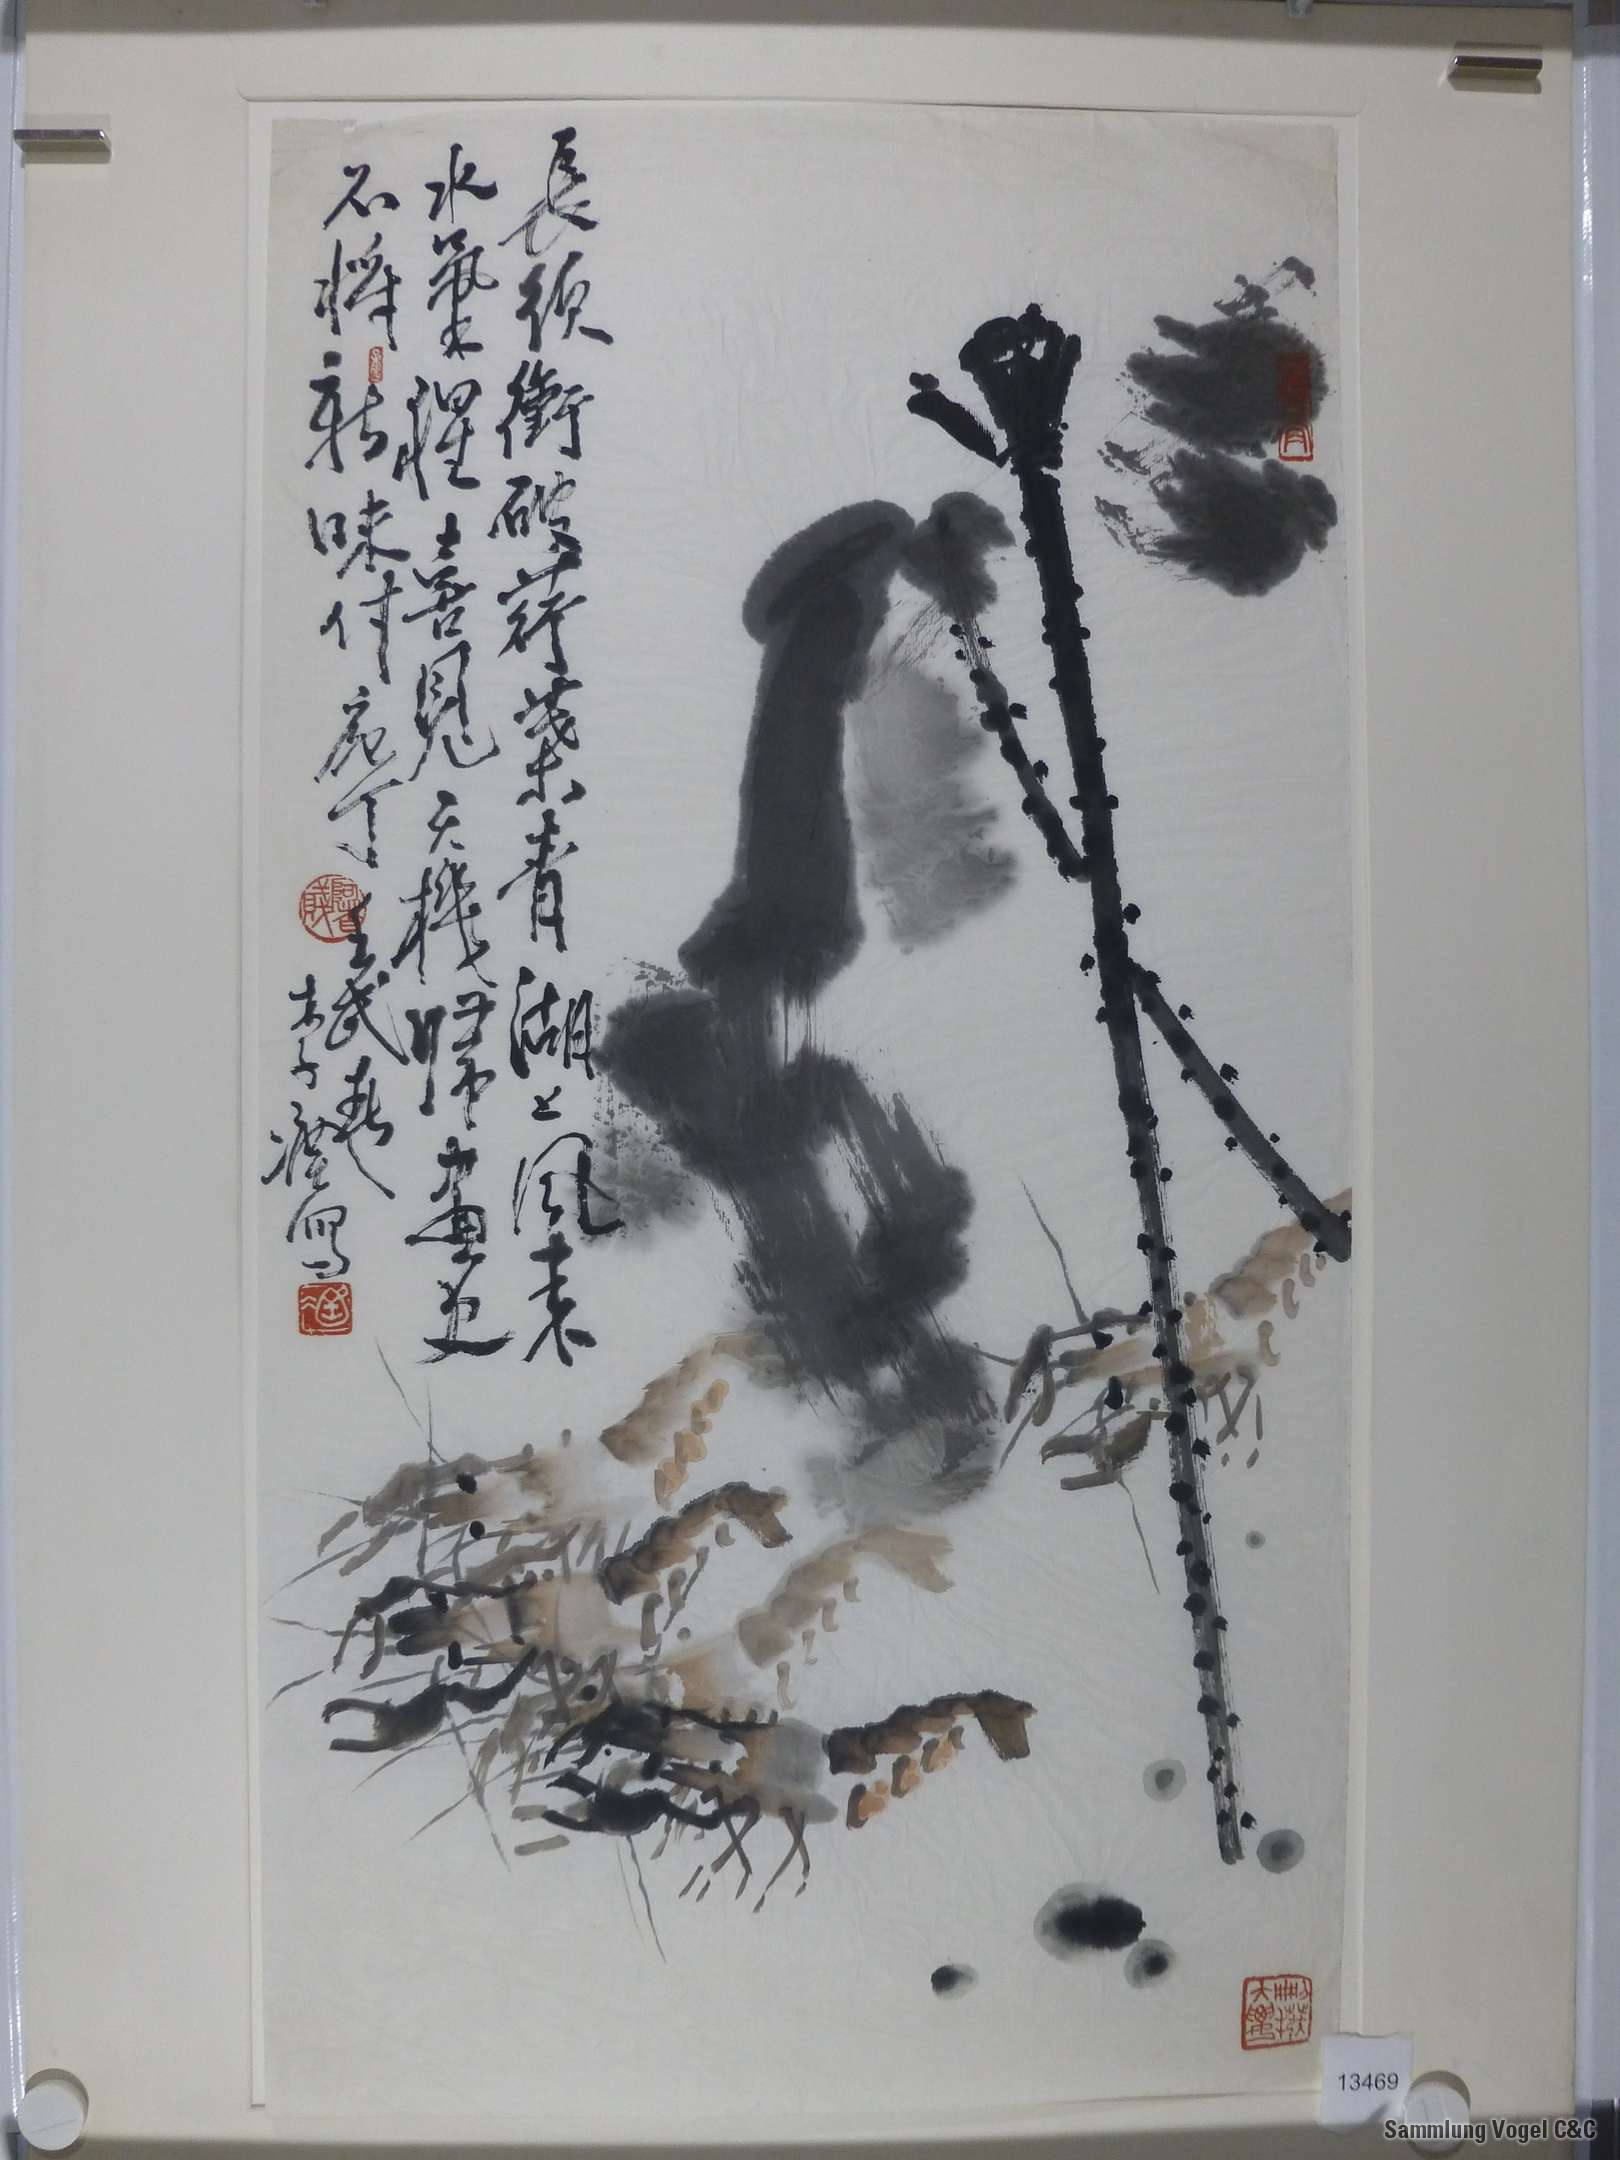 長須衝破荇葉青湖上風來
水氣腥喜見天機歸畫史
不將新味付庖丁壬戌春
木子寫
大寫
13469
Sammlung Vogel C&C